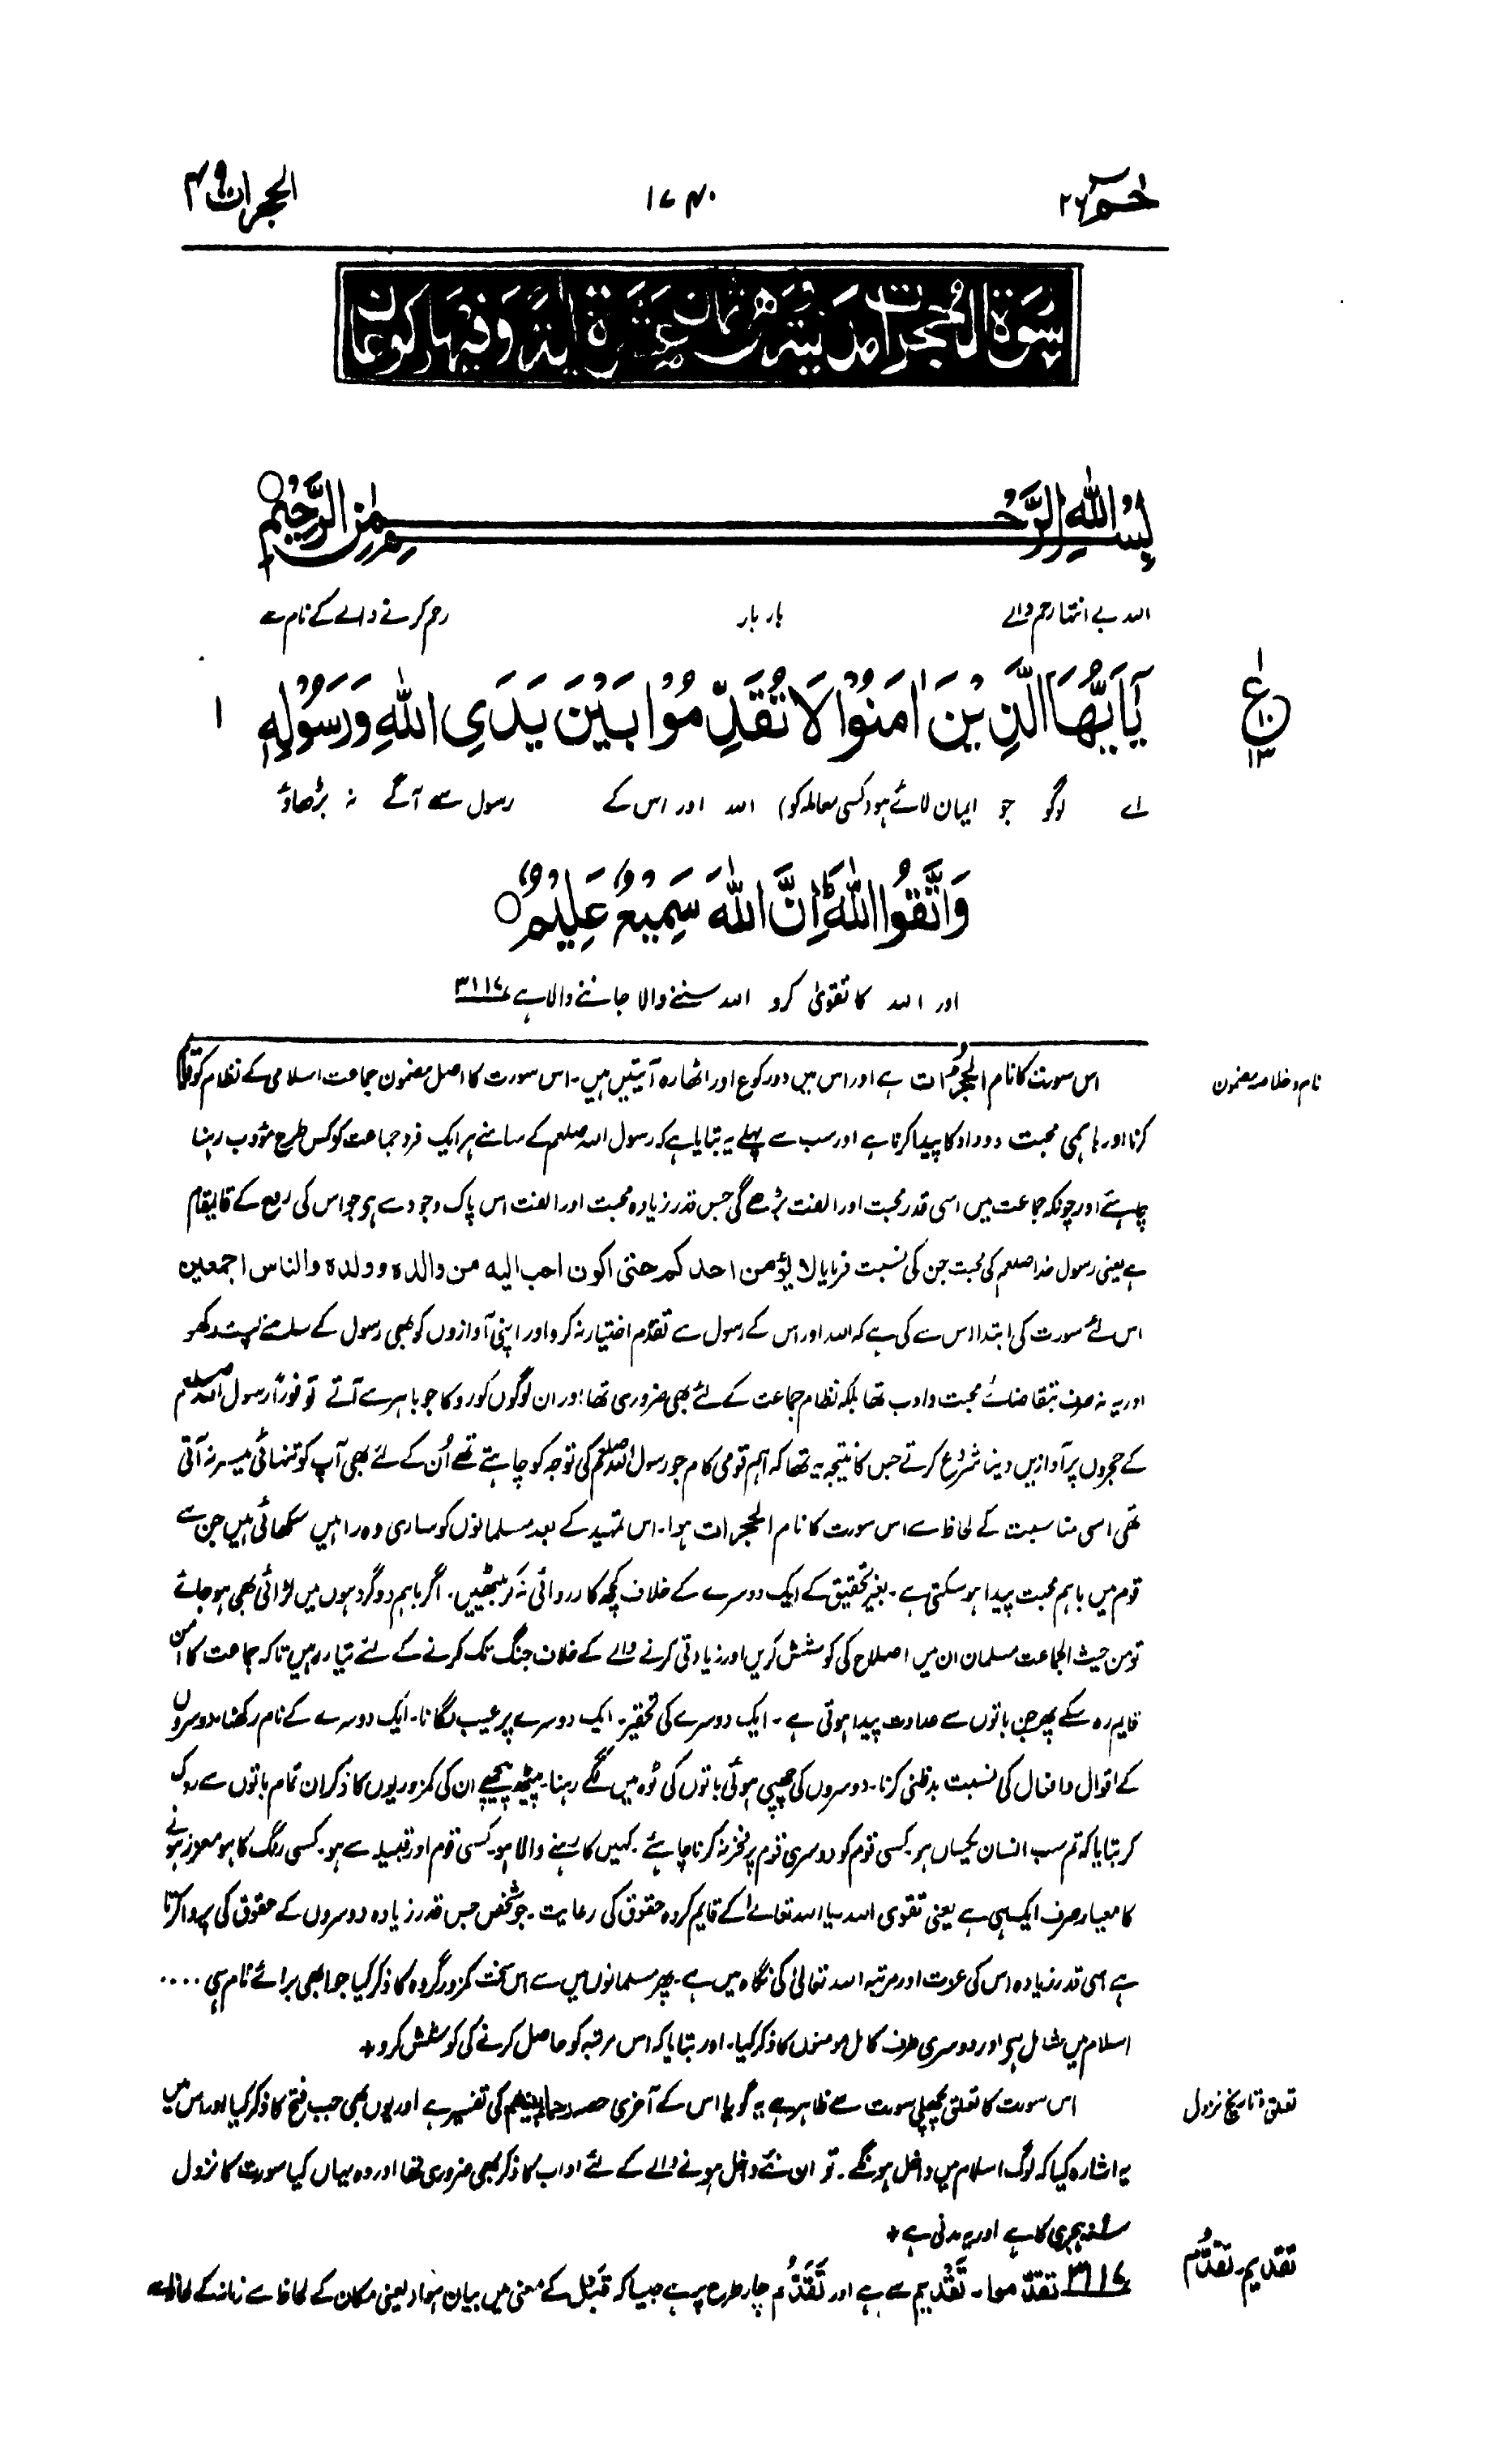 حٰمٓ ۲۶
۱۷۴۰
الحجرات ۴۹
سورة الحجرات مدنية وهي ثمان عشرة اية وفيها ركوعان
بِسْمِ اللهِ الرَّحْمٰنِ الرَّحِيْمِ ○
اللہ بے انتہا رحم والے بار بار رحم کرنے والے کے نام سے
يٰۤاَيُّهَا الَّذِيْنَ اٰمَنُوْا لَا تُقَدِّمُوْا بَيْنَ يَدَيِ اللهِ وَرَسُوْلِهٖ
۱
ع
۱۰
۱۳
اے لوگو جو ایمان لائے ہو (کسی معاملہ کو) اللہ اور اس کے رسول سے آگے نہ بڑھاؤ
وَاتَّقُوا اللهَ ؕ اِنَّ اللهَ سَمِيْعٌ عَلِيْمٌ ○
اور اللہ کا تقویٰ کرو اللہ سننے والا جاننے والا ہے ۳۱۱۷
نام و خلاصہ مضمون
اس سورت کا نام الحُجُرَات ہے اور اس میں دو رکوع اور اٹھارہ آیتیں ہیں۔ اس سورت کا اصل مضمون جماعت اسلامی کے نظام کو قائم
کرنا اور باہمی محبت و وداد کا پیدا کرنا ہے اور سب سے پہلے یہ بتایا ہے کہ رسول اللہ صلعم کے سامنے ہر ایک فرد جماعت کو کس طرح مؤدب رہنا
چاہئے اور چونکہ جماعت میں اسی قدر محبت اور الفت بڑھے گی جس قدر زیادہ محبت اور الفت اس پاک وجود سے ہو جو اس کی روح کے قایمقام
ہے یعنی رسول خدا صلعم کی محبت جن کی نسبت فرمایا لا يؤمن احدكم حتى اكون احب اليه من والده وولده والناس اجمعين
اس لئے سورت کی ابتدا اس سے کی ہے کہ اللہ اور اس کے رسول سے تقدّم اختیار نہ کرو اور اپنی آوازوں کو بھی رسول کے سامنے پست رکھو
اور یہ نہ صرف بتقاضائے محبت و ادب تھا بلکہ نظام جماعت کے لئے بھی ضروری تھا اور ان لوگوں کو روکا جو باہر سے آتے تو فوراً رسول اللہ صلعم
کے حجروں پر آوازیں دینا شروع کرتے جس کا نتیجہ یہ تھا کہ اہم قومی کام جو رسول اللہ صلعم کی توجہ کو چاہتے تھے اُن کے لئے بھی آپ کو تنہائی میسر نہ آتی
تھی اسی مناسبت کے لحاظ سے اس سورت کا نام الحجرات ہوا۔ اس تمہید کے بعد مسلمانوں کو ساری وہ راہیں سکھائی ہیں جن سے
قوم میں باہم محبت پیدا ہوسکتی ہے۔ بغیر تحقیق کے ایک دوسرے کے خلاف کچھ کارروائی نہ کر بیٹھیں۔ اگر باہم دو گروہوں میں لڑائی بھی ہو جائے
تو من حیث الجماعت مسلمان ان میں اصلاح کی کوشش کریں اور زیادتی کرنے والے کے خلاف جنگ تک کرنے کے لئے تیار رہیں تاکہ جماعت کا امن
قایم رہ سکے پھر جن باتوں سے عداوت پیدا ہوتی ہے۔ ایک دوسرے کی تحقیر۔ ایک دوسرے پر عیب لگانا۔ ایک دوسرے کے نام رکھنا۔ دوسروں
کے اقوال و افعال کی نسبت بدظنی کرنا۔ دوسروں کی چھپی ہوئی باتوں کی ٹوہ میں لگے رہنا۔ پیٹھ پیچھے ان کی کمزوریوں کا ذکر ان تمام باتوں سے روک
کر بتایا کہ تم سب انسان یکساں ہو۔ کسی قوم کو دوسری قوم پر فخر نہ کرنا چاہئے۔ کہیں کا رہنے والا ہو۔ کسی قوم اور قبیلہ سے ہو۔ کسی رنگ کا ہو معزز ہونے
کا معیار صرف ایک ہی ہے یعنی تقوی اللہ یا اللہ تعالےٰ کے قایم کردہ حقوق کی رعایت۔ جو شخص جس قدر زیادہ دوسروں کے حقوق کی پروا کرتا
ہے اسی قدر زیادہ اس کی عزت اور مرتبہ اللہ تعالیٰ کی نگاہ میں ہے۔ پھر مسلمانوں میں سے اس سخت کمزور گروہ کا ذکر کیا جو ابھی برائے نام ہی ....
اسلام میں شامل ہے اور دوسری طرف کامل مومنوں کا ذکر کیا۔ اور بتایا کہ اس مرتبہ کو حاصل کرنے کی کوشش کرو+
تعلق و تاریخ نزول
اس سورت کا تعلق پچھلی سورت سے ظاہر ہے یہ گویا اس کے آخری حصہ رحماء بینھم کی تفسیر ہے اور یوں بھی جب فتح کا ذکر کیا اور اس میں
یہ اشارہ کیا کہ لوگ اسلام میں داخل ہونگے۔ تو ان نئے داخل ہونے والے کے لئے اداب کا ذکر بھی ضروری تھا اور وہ یہاں کیا سورت کا نزول
ہجری کا ہے اور یہ مدنی ہے+
تقدیم۔ تَقَدُّم
۳۱۱۷ تقدّموا۔ تَقْدیم سے ہے اور تَقَدُّم چار طرح پر ہے جیسا کہ قَبْل کے معنی میں بیان ہوا۔ یعنی مکان کے لحاظ سے زمانہ کے لحاظ سے